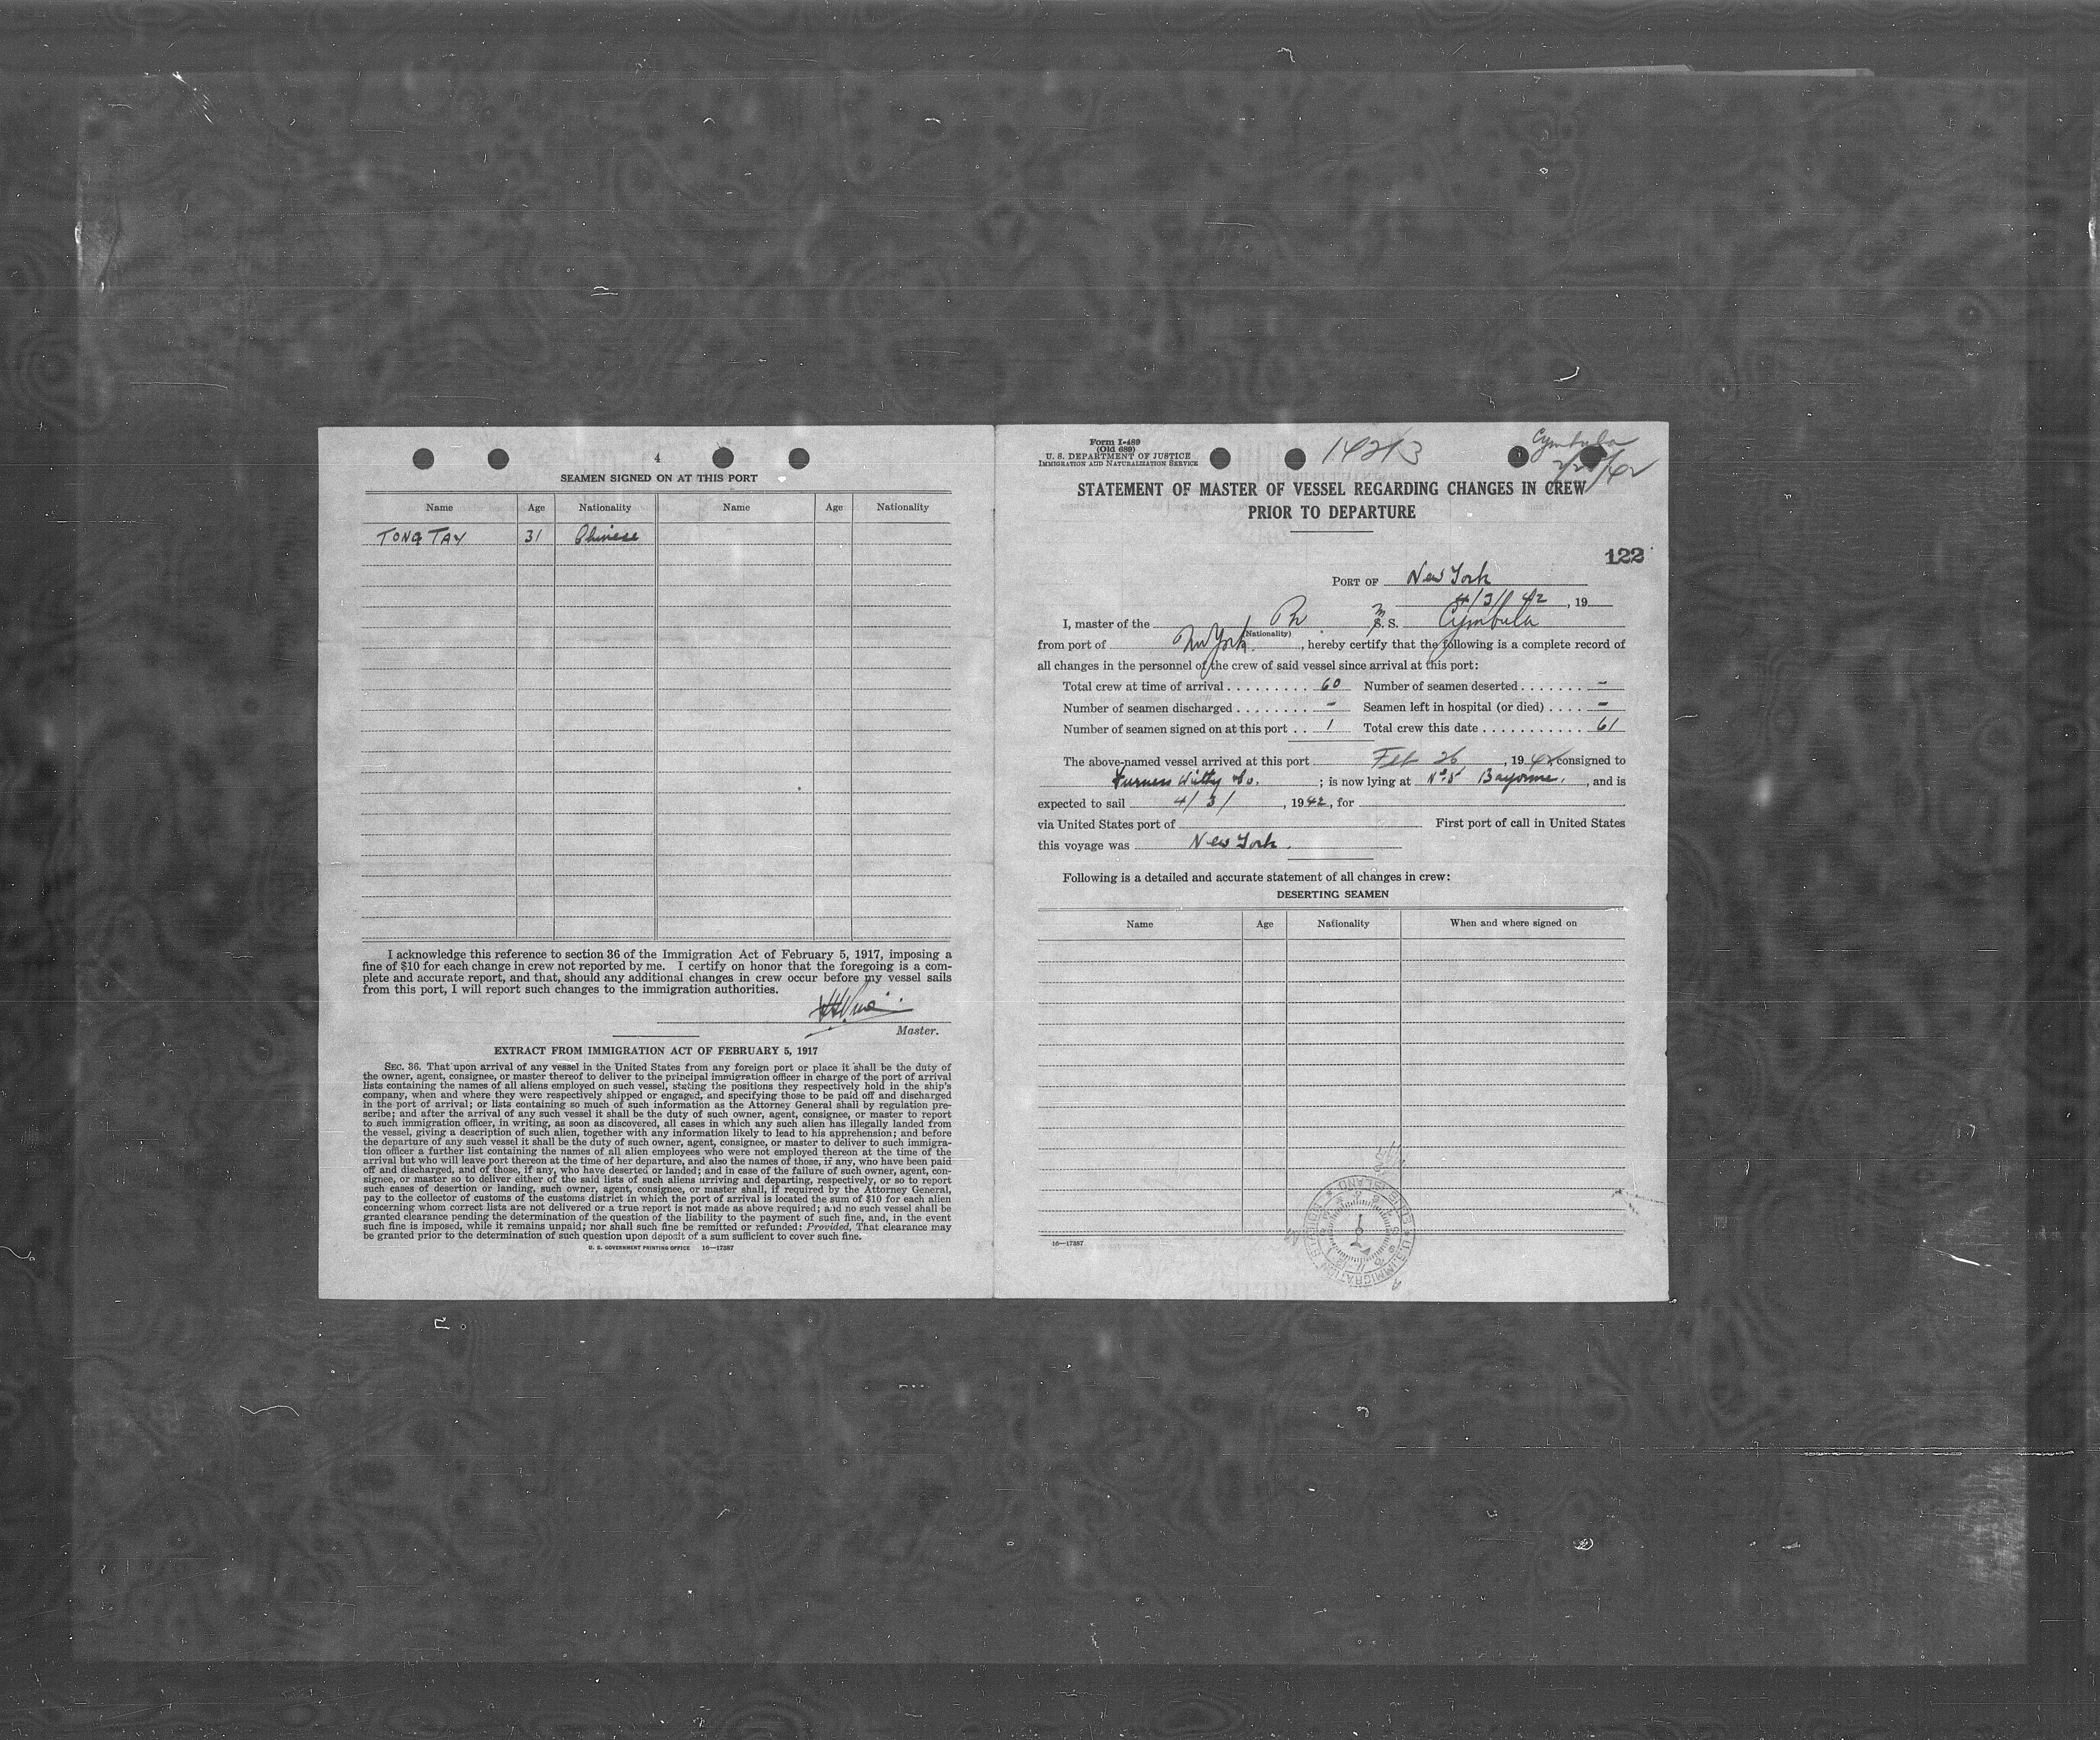 4
SEAMEN SIGNED ON AT THIS PORT
Name Age Nationality Name Age Nationality
TONG TAY 31 Chinese
I acknowledge this reference to section 36 of the Immigration Act of February 5, 1917, imposing a
fine of $10 for each change in crew not reported by me. I certify on honor that the foregoing is a com-
plete and accurate report, and that, should any additional changes in crew occur before my vessel sails
from this port, I will report such changes to the immigration authorities.
Master.
EXTRACT FROM IMMIGRATION ACT OF FEBRUARY 5, 1917
SEC. 36. That upon arrival of any vessel in the United States from any foreign port or place it shall be the duty of
the owner, agent, consignee, or master thereof to deliver to the principal immigration officer in charge of the port of arrival
lists containing the names of all aliens employed on such vessel, stating the positions they respectively hold in the ship's
company, when and where they were respectively shipped or engaged, and specifying those to be paid off and discharged
in the port of arrival; or lists containing so much of such information as the Attorney General shall by regulation pre-
scribe; and after the arrival of any such vessel it shall be the duty of such owner, agent, consignee, or master to report
to such immigration officer, in writing, as soon as discovered, all cases in which any such alien has illegally landed from
the vessel, giving a description of such alien, together with any information likely to lead to his apprehension; and before
the departure of any such vessel it shall be the duty of such owner, agent, consignee, or master to deliver to such immigra-
tion officer a further list containing the names of all alien employees who were not employed thereon at the time of the
arrival but who will leave port thereon at the time of her departure, and also the names of those, if any, who have been paid
off and discharged, and of those, if any, who have deserted or landed; and in case of the failure of such owner, agent, con-
signee, or master so to deliver either of the said lists of such aliens arriving and departing, respectively, or so to report
such cases of desertion or landing, such owner, agent, consignee, or master shall, if required by the Attorney General,
pay to the collector of customs of the customs district in which the port of arrival is located the sum of $10 for each alien
concerning whom correct lists are not delivered or a true report is not made as above required; and no such vessel shall be
granted clearance pending the determination of the question of the liability to the payment of such fine, and, in the event
such fine is imposed, while it remains unpaid; nor shall such fine be remitted or refunded: Provided, That clearance may
be granted prior to the determination of such question upon deposit of a sum sufficient to cover such fine.
U. S. GOVERNMENT PRINTING OFFICE 16—17387
Form I-489
(Old 689)
U. S. DEPARTMENT OF JUSTICE
IMMIGRATION AND NATURALIZATION SERVICE
14213
Cymbula
STATEMENT OF MASTER OF VESSEL REGARDING CHANGES IN CREW
PRIOR TO DEPARTURE
122
PORT OF New York
4/3/42, 19
I, master of the (Nationality) S. S. Cymbula
from port of New York, hereby certify that the following is a complete record of
all changes in the personnel of the crew of said vessel since arrival at this port:
Total crew at time of arrival 60 Number of seamen deserted -
Number of seamen discharged - Seamen left in hospital (or died) -
Number of seamen signed on at this port 1 Total crew this date 61
The above-named vessel arrived at this port Feb 26, 1942 consigned to
Furness Withy & Co.; is now lying at No. 5 Bayonne, and is
expected to sail 4/3/, 1942, for
via United States port of First port of call in United States
this voyage was New York.
Following is a detailed and accurate statement of all changes in crew:
DESERTING SEAMEN
Name Age Nationality When and where signed on
16—17387
U.S. IMMIGRATION